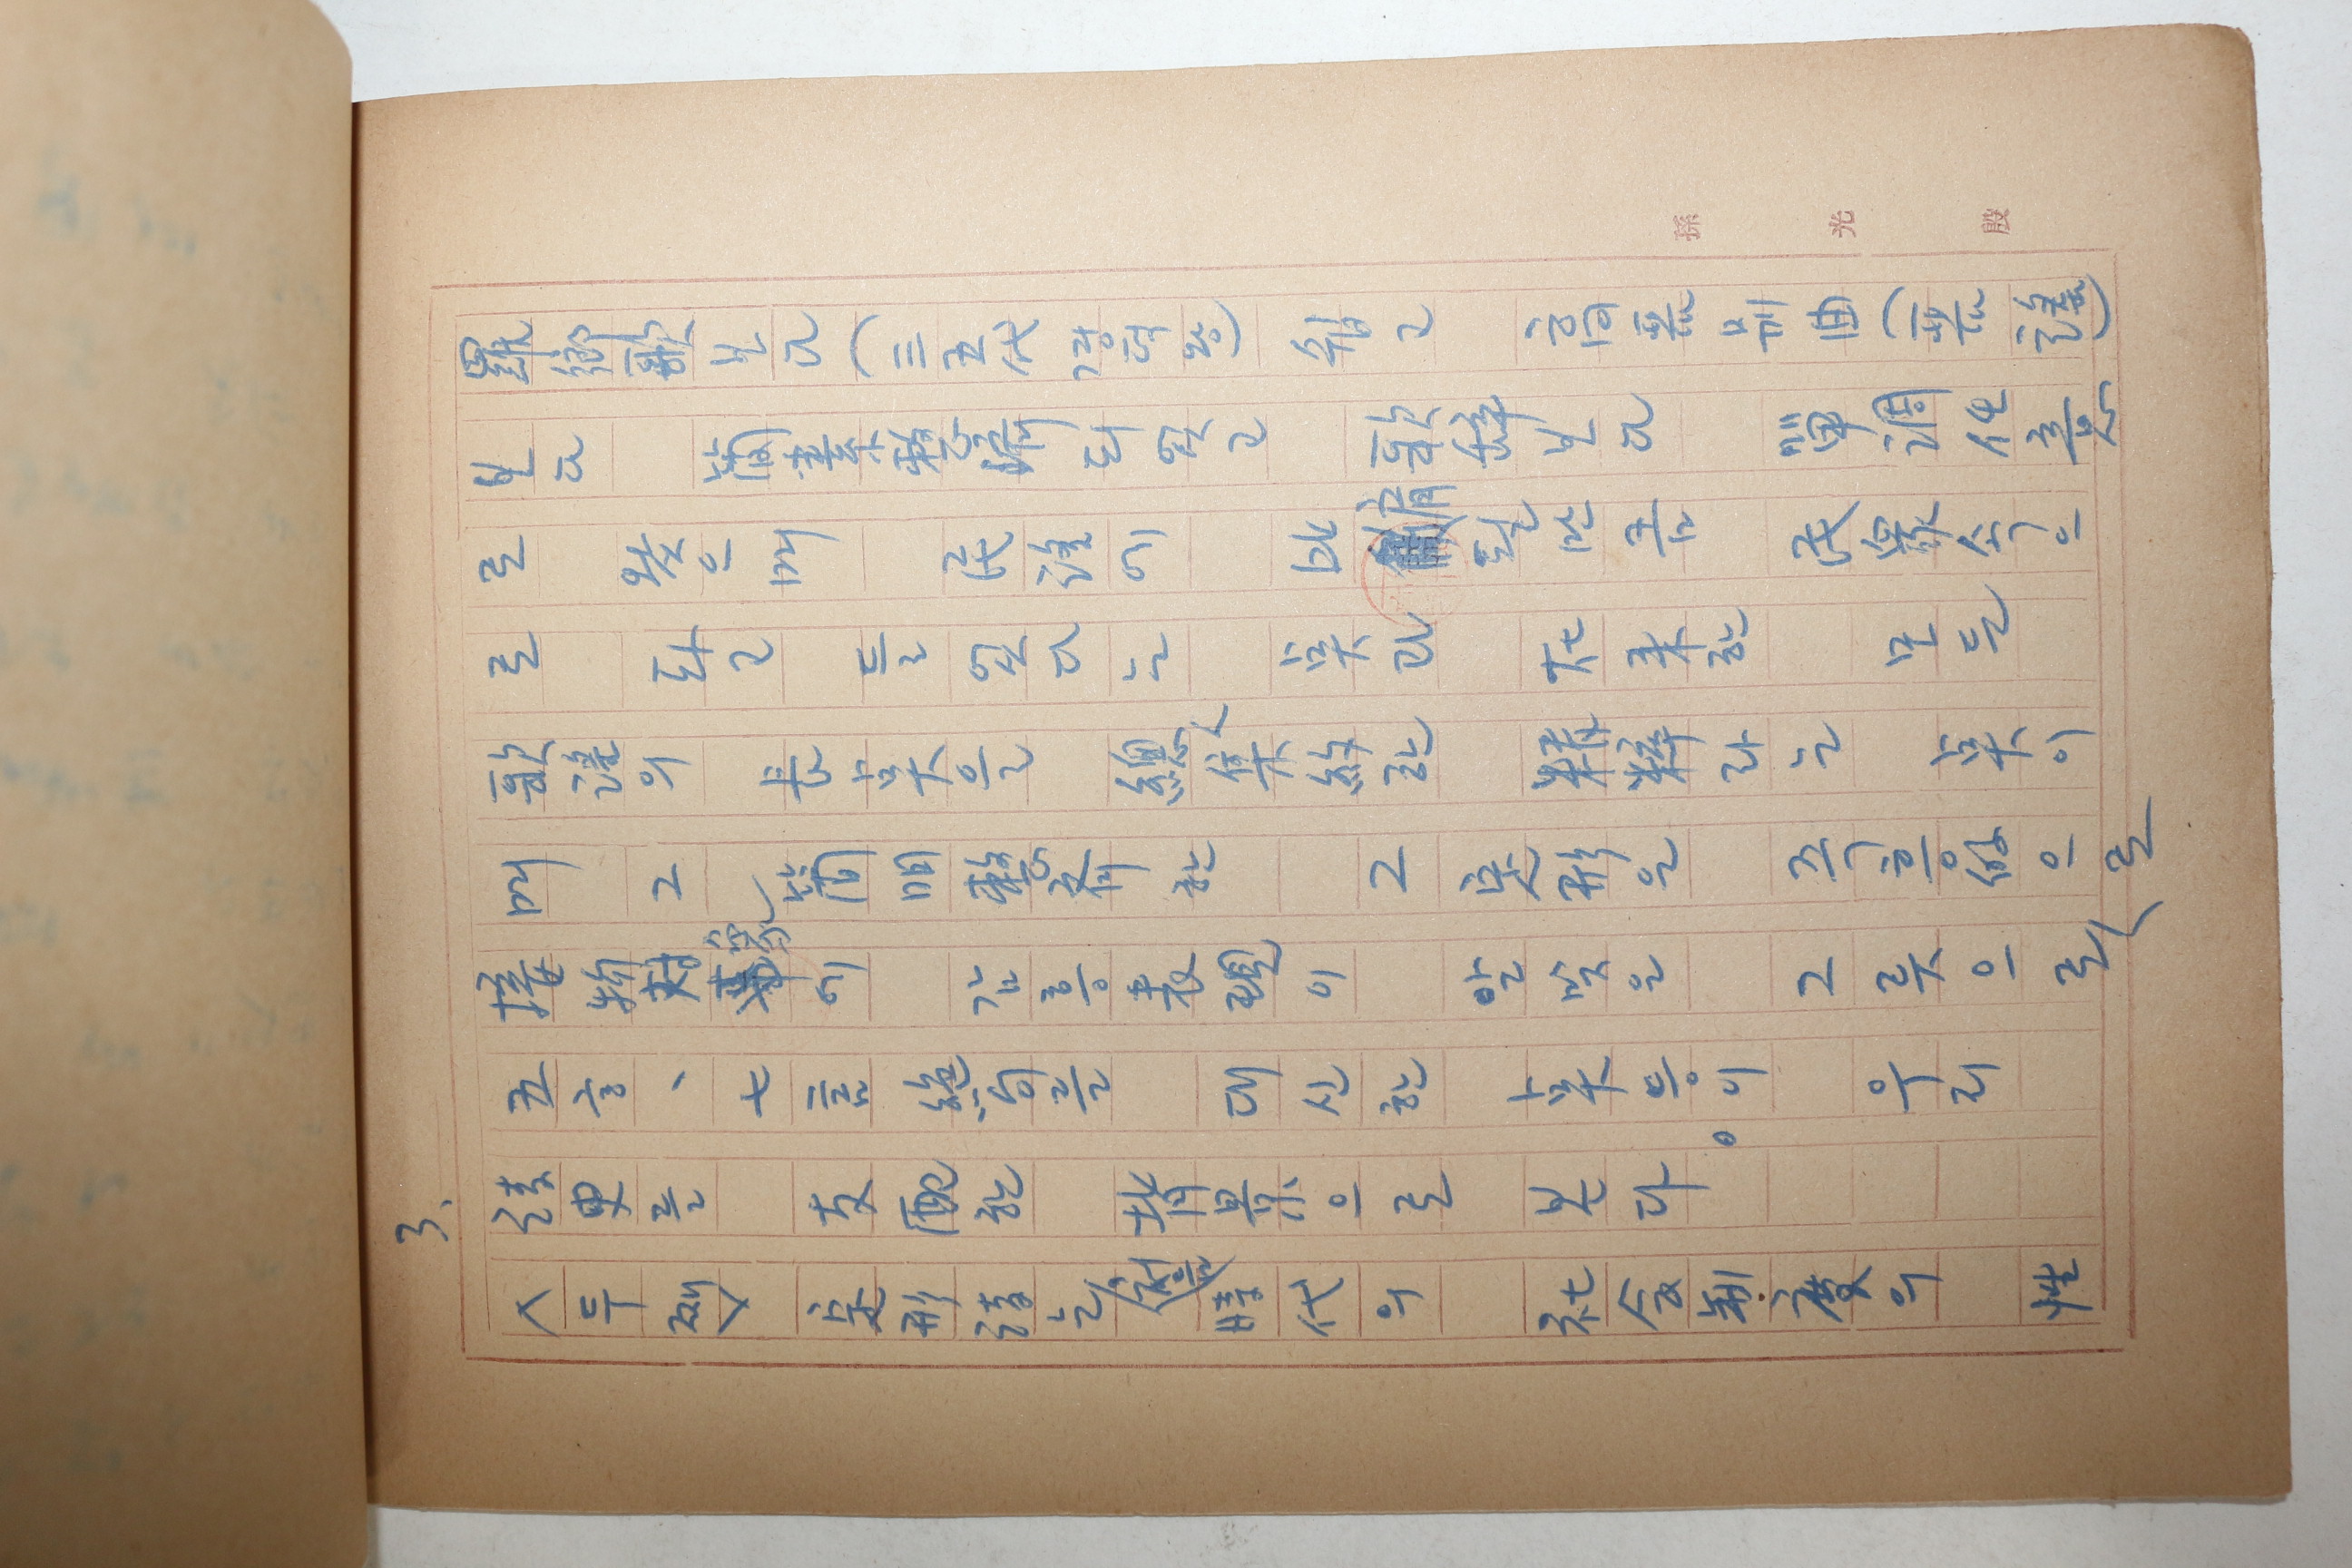 3.
羅鄕歌보다(三五代 경덕왕) 쉽고 高麗別曲(麗謠)
보다 簡素整齊되였고 歌辭보다 單調化意
로 왔으며 民謠에 比肩될만큼 民衆속으
로 타고들었다는 点과 在來한 모든
歌謠의 長点을 總集約한 精粹라는 点이
며 그 簡明整齊한 그 定形은 즉흥的으로
接物 에 감흥表現이 알맞은 그릇으로
五言、七言絶句를 대신한 点등이 우리
詩史를 支配한 背景으로 본다。
<두째> 定形詩는, 時代의 社会制度의 性
孫 光 殷